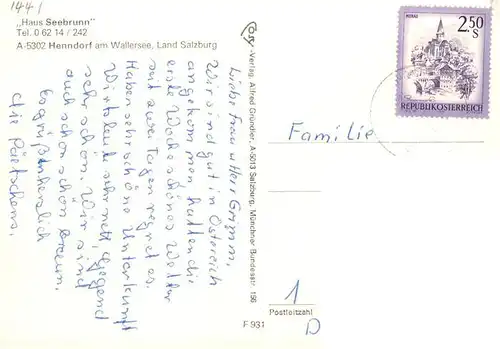 1441
„Haus Seebrunn"
Tel. 0 62 14 / 242
A-5302 Henndorf am Wallersee, Land Salzburg
Liebe Frau u Herr Gramm,
Wir sind gut in Östereich
angekommen hatten die
erste Woche schönes Wetter
seit zwei Tagen regnet es.
Haben sehr schöne Unterkunft
Wirtsleute sehr nett, Gegend
sehr schön. Wir sind
auch schon schön braun.
Es grüßt herzlich
die
Verlag Alfred Gründler, A-5013 Salzburg, Münchner Bundesstr. 156
F 931
MURAU
2.50
S
REPUBLIK ÖSTERREICH
Familie
1
Postleitzahl
D